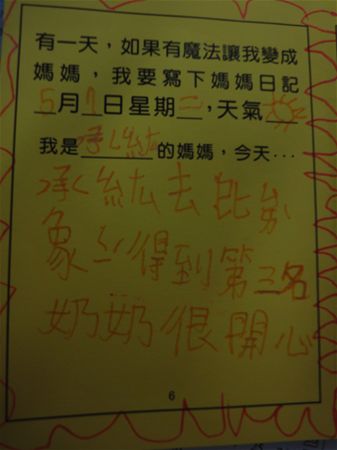 有一天，如果有魔法讓我變成
媽媽，我要寫下媽媽日記
5月1日星期二，天氣
我是承紘的媽媽，今天⋯
承紘去比
象得到第三名
奶奶很開心
6